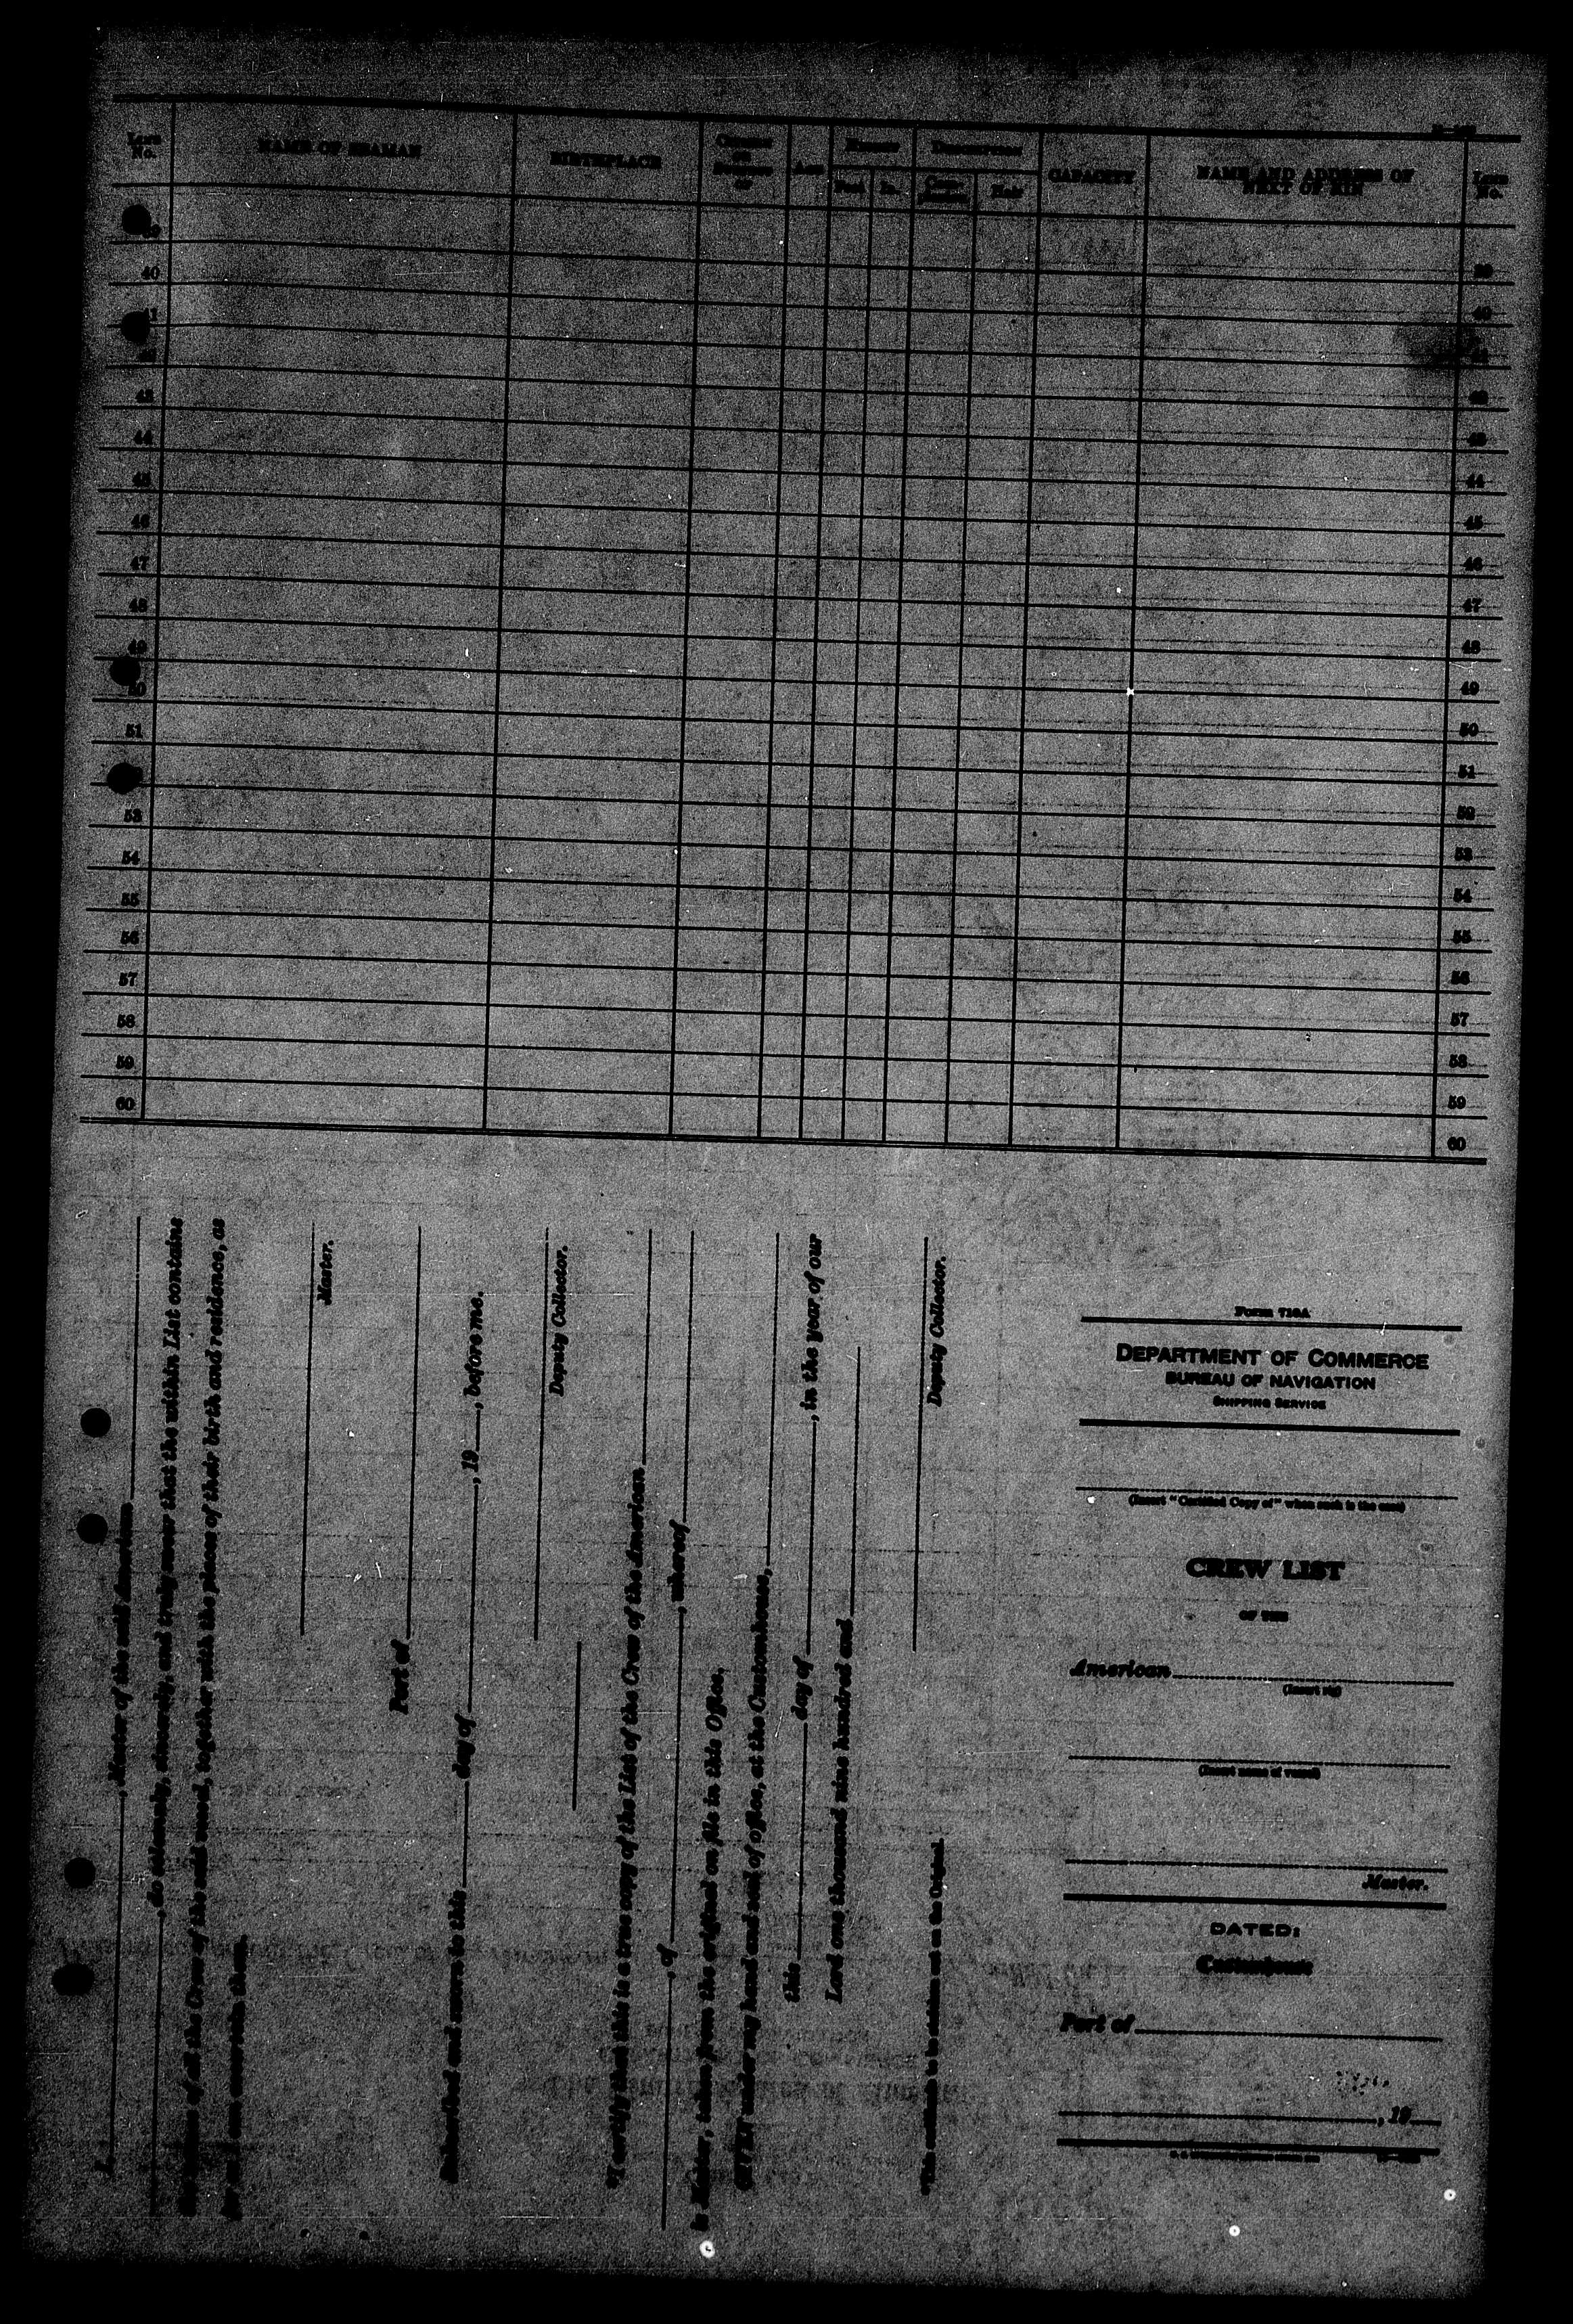 Line No.
NAME OF SEAMAN
BIRTHPLACE
Citizens or Subjects of
Age
Height
Feet
In.
Description
Complexion
Hair
CAPACITY
NAME AND ADDRESS OF
NEXT OF KIN
Line No.
39 39
40 40
41 41
42 42
43 43
44 44
45 45
46 46
47 47
48 48
49 49
50 50
51 51
52 52
53 53
54 54
55 55
56 56
57 57
58 58
59 59
60 60
I, , Master of the said American
, do solemnly, sincerely, and truly swear that the within List contains
the names of all the Crew of the said vessel, together with the places of their birth and residence, as
far as I can ascertain them.
Master.
Port of
Subscribed and sworn to this day of , 19 , before me.
Deputy Collector.
"I certify that this is a true copy of the List of the Crew of the American
, of , whereof
is Master, taken from the original on file in this Office.
GIVEN under my hand and seal of office, at the Customhouse,
this day of , in the year of our
Lord one thousand nine hundred and
Deputy Collector.
*This certificate to be stricken out on the Original.
Form 710A
DEPARTMENT OF COMMERCE
BUREAU OF NAVIGATION
SHIPPING SERVICE
(Insert "Certified Copy of" when such is the case)
CREW LIST
OF THE
American
(Insert rig)
(Insert name of vessel)
Master.
DATED:
Customhouse
Port of
, 19